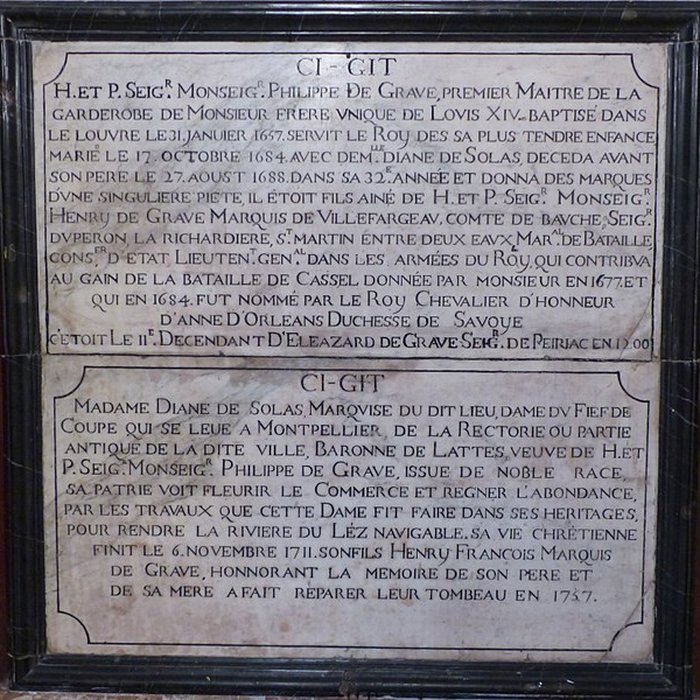 CI-GIT
H. ET P. SEIG.R MONSEIG.R PHILIPPE DE GRAVE, PREMIER MAITRE DE LA
GARDEROBE DE MONSIEUR FRERE VNIQUE DE LOVIS XIV. BAPTISÉ DANS
LE LOUVRE LE 31 JANVIER 1657. SERVIT LE ROY DES SA PLUS TENDRE ENFANCE,
MARIÉ LE 17. OCTOBRE 1684. AVEC DEM.LLE DIANE DE SOLAS, DECEDA AVANT
SON PERE LE 27. AOUST 1688. DANS SA 32.E ANNÉE ET DONNA DES MARQUES
D'VNE SINGULIERE PIETE, IL ÉTOIT FILS AINÉ DE H. ET P. SEIG.R MONSEIG.R
HENRY DE GRAVE MARQUIS DE VILLEFARGEAV, COMTE DE BAVCHE, SEIG.R
DVPERON, LA RICHARDIERE, S.T MARTIN ENTRE DEUX EAVX, MAR.AL DE BATAILLE
CONS.ER D'ETAT, LIEUTEN.T GEN.AL DANS LES ARMÉES DU ROY, QUI CONTRIBVA
AU GAIN DE LA BATAILLE DE CASSEL DONNÉE PAR MONSIEUR EN 1677. ET
QUI EN 1684. FUT NOMMÉ PAR LE ROY CHEVALIER D'HONNEUR
D'ANNE D'ORLEANS DUCHESSE DE SAVOYE
C'ETOIT LE 11E. DECENDANT D'ELEAZARD DE GRAVE SEIG.R DE PEIRIAC EN 1200
CI-GIT
MADAME DIANE DE SOLAS, MARQVISE DU DIT LIEU, DAME DV FIEF DE
COUPE QUI SE LEUE A MONTPELLIER, DE LA RECTORIE OU PARTIE
ANTIQUE DE LA DITE VILLE, BARONNE DE LATTES, VEUVE DE H. ET
P. SEIG.R MONSEIG.R PHILIPPE DE GRAVE, ISSUE DE NOBLE RACE,
SA PATRIE VOIT FLEURIR LE COMMERCE ET REGNER L'ABONDANCE,
PAR LES TRAVAUX QUE CETTE DAME FIT FAIRE DANS SES HERITAGES,
POUR RENDRE LA RIVIERE DU LÉZ NAVIGABLE. SA VIE CHRÉTIENNE
FINIT LE 6. NOVEMBRE 1711. SON FILS HENRY FRANCOIS MARQUIS
DE GRAVE, HONNORANT LA MEMOIRE DE SON PERE ET
DE SA MERE A FAIT REPARER LEUR TOMBEAU EN 1757.